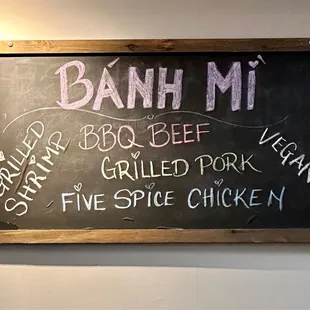 BÁNH MÌ
GRILLED
SHRIMP
BBQ BEEF
GRILLED PORK
FIVE SPICE CHICKEN
VEGAN